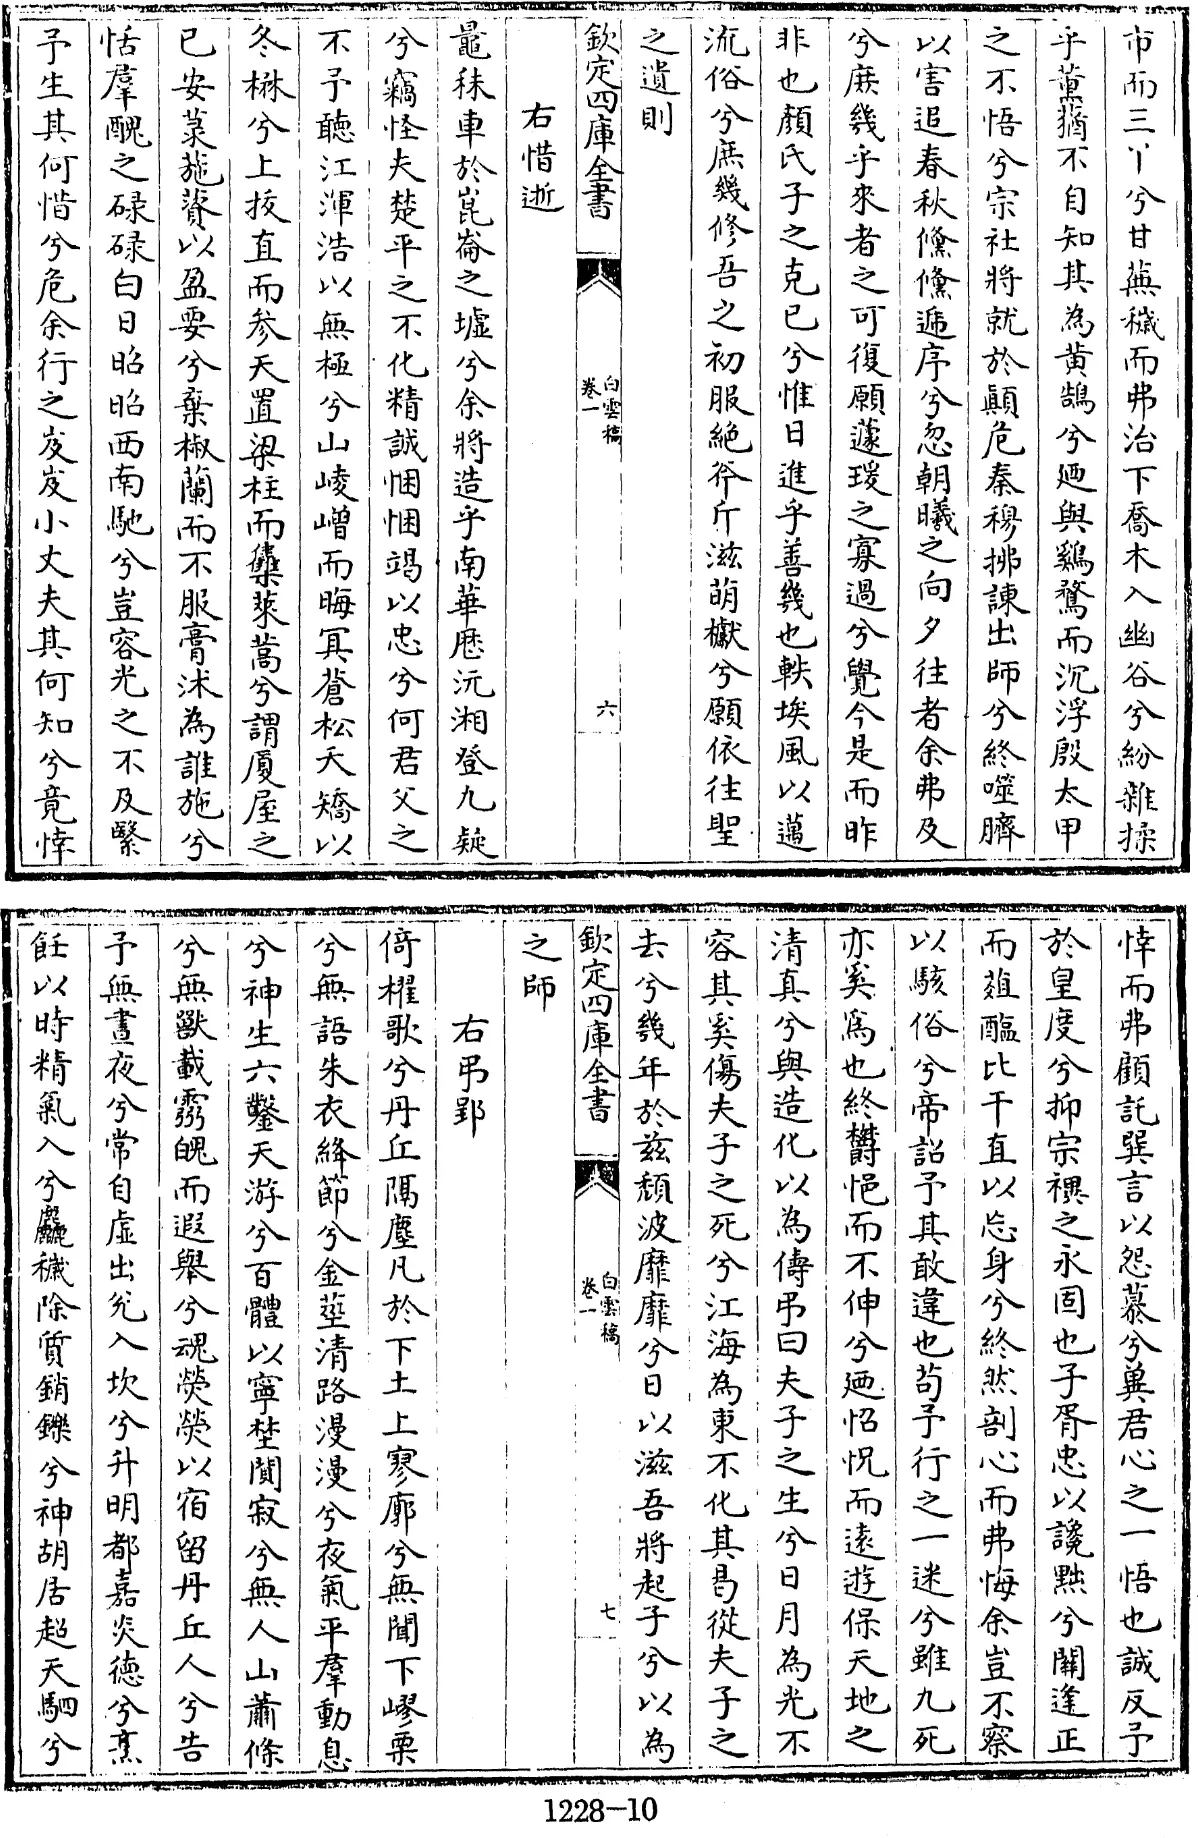 市而三丫兮甘蕪穢而弗治下喬木入幽谷兮紛雜揉
乎薰蕕不自知其為黄鵠兮廼與鷄鶩而沉浮殷太甲
之不悟兮宗社將就於顚危秦穆拂諫出師兮終噬臍
以害追春秋儵儵遞序兮忽朝曦之向夕往者余弗及
兮庶幾乎來者之可復願蘧瑗之寡過兮覺今是而昨
非也顏氏子之克已兮惟日進乎善幾也軼埃風以邁
流俗兮庶幾修吾之初服絶斧斤滋萌櫱兮願依往聖
之遺則
欽定四庫全書
白雲稿
卷一
六
右惜逝
鼂秣車於崑崙之墟兮余將造乎南華歴沅湘登九疑
兮竊怪夫楚平之不化精誠悃悃竭以忠兮何君父之
不予聽江渾浩以無極兮山崚嶒而晦冥蒼松夭矯以
冬楙兮上拔直而參天置梁柱而藂萊蒿兮謂厦屋之
已安菉葹薋以盈要兮棄椒蘭而不服膏沭為誰施兮
恬羣醜之碌碌白日昭昭西南馳兮豈容光之不及繄
予生其何惜兮危余行之岌岌小丈夫其何知兮竟悻
悻而弗顧託巽言以怨慕兮冀君心之一悟也誠反予
於皇度兮抑宗禩之永固也子胥忠以讒黜兮關逢正
而葅醢比干直以忘身兮終然剖心而弗悔余豈不察
以駭俗兮帝詔予其敢違也苟予行之一迷兮雖九死
亦奚為也終欝悒而不伸兮廼怊怳而遠遊保天地之
清真兮與造化以為儔弔曰夫子之生兮日月為光不
容其奚傷夫子之死兮江海為東不化其曷從夫子之
去兮幾年於兹頽波靡靡兮日以滋吾將起子兮以為
欽定四庫全書
白雲稿
卷一
七
之師
右弔郢
倚櫂歌兮丹丘隔塵凡於下土上寥廓兮無聞下嵺栗
兮無語朱衣絳節兮金莖清路漫漫兮夜氣平羣動息
兮神生六鑿天游兮百體以寧埜闃寂兮無人山蕭條
兮無獸載霛魄而遐舉兮魂熒熒以宿留丹丘人兮告
予無晝夜兮常自虚出兊入坎兮升明都嘉炎德兮熏
飪以時精氣入兮麤穢除質銷鑠兮神胡居超天駟兮
1228-10